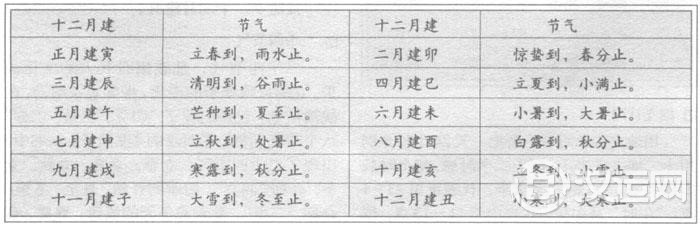 十二月建 节气 十二月建 节气
正月建寅 立春到，雨水止。 二月建卯 惊蛰到，春分止。
三月建辰 清明到，谷雨止。 四月建巳 立夏到，小满止。
五月建午 芒种到，夏至止。 六月建未 小暑到，大暑止。
七月建申 立秋到，处暑止。 八月建酉 白露到，秋分止。
九月建戌 寒露到，秋分止。 十月建亥 立冬到，小雪止。
十一月建子 大雪到，冬至止。 十二月建丑 小寒到，大寒止。
汉运网